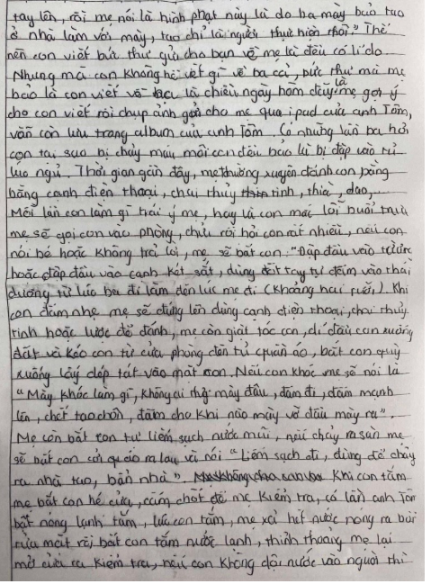 tay lên, rồi mẹ nói là hình phạt này là do ba mày bảo tao
ở nhà làm với mày, tao chỉ là người thực hiện thôi". Thế
nên con viết bức thư gửi cho bạn về mẹ là đều có lí do
Nhưng mà con không hề viết gì về ba cả, bức thư mà mẹ
bảo là con viết về là chiều ngày hôm đấy mẹ gợi ý
cho con viết rồi chụp ảnh gửi cho mẹ qua ipad của anh Tâm,
vẫn còn lưu trong album của anh Tâm. Có những lần ba hỏi
con tại sao bị chảy máu mồi con đều bảo là bị đập vào tủ
lúc ngủ. Thời gian gần đây, mẹ thường xuyên đánh con bằng
bằng cạnh điện thoại, chai thủy tinh, thìa, dao,...
Mỗi lần con làm gì trái ý mẹ, hay là con mắc lỗi buổi trưa
mẹ sẽ gọi con vào phòng, chửi rồi hỏi con rất nhiều, nếu con
nói bé hoặc không trả lời, mẹ sẽ bắt con: "Đập đầu vào
hoặc đập đầu vào cạnh két sắt, dùng tay tự đấm vào thái
dương từ lúc ba đi làm đến lúc mẹ đi (khoảng hai tiếng). Khi
con đấm nhẹ mẹ sẽ đứng lên dùng cạnh điện thoại, chai thủy
tinh hoặc lược để đánh, mẹ còn giật tóc con, dí đầu con xuống
đất và kéo con từ cửa phòng đến tủ quần áo, bắt con quỳ
xuống lấy dép tát vào mặt con. Nếu con khóc mẹ sẽ nói là
"Mày khóc làm gì, không ai thở mày đâu, đấm đi, đấm mạnh
lên, chết tao chôn, đấm cho khi nào mày vỡ đầu mày ra".
Mẹ còn bắt con tự liếm sạch nước mũi, nếu chảy ra sàn mẹ
sẽ bắt con cởi quần áo ra lau và nói "Liếm sạch đi, đừng để chảy
ra nhà tao, bẩn nhà". Khi con tắm
mẹ bắt con hé cửa, cấm chốt để mẹ kiểm tra, có lần anh Tâm
bật nóng lạnh tắm, lúc con tắm, mẹ xả hết nước nóng ra bồn
rửa mặt rồi bắt con tắm nước lạnh, thỉnh thoảng mẹ lại
mở cửa ra kiểm tra, nếu con không dội nước vào người thì